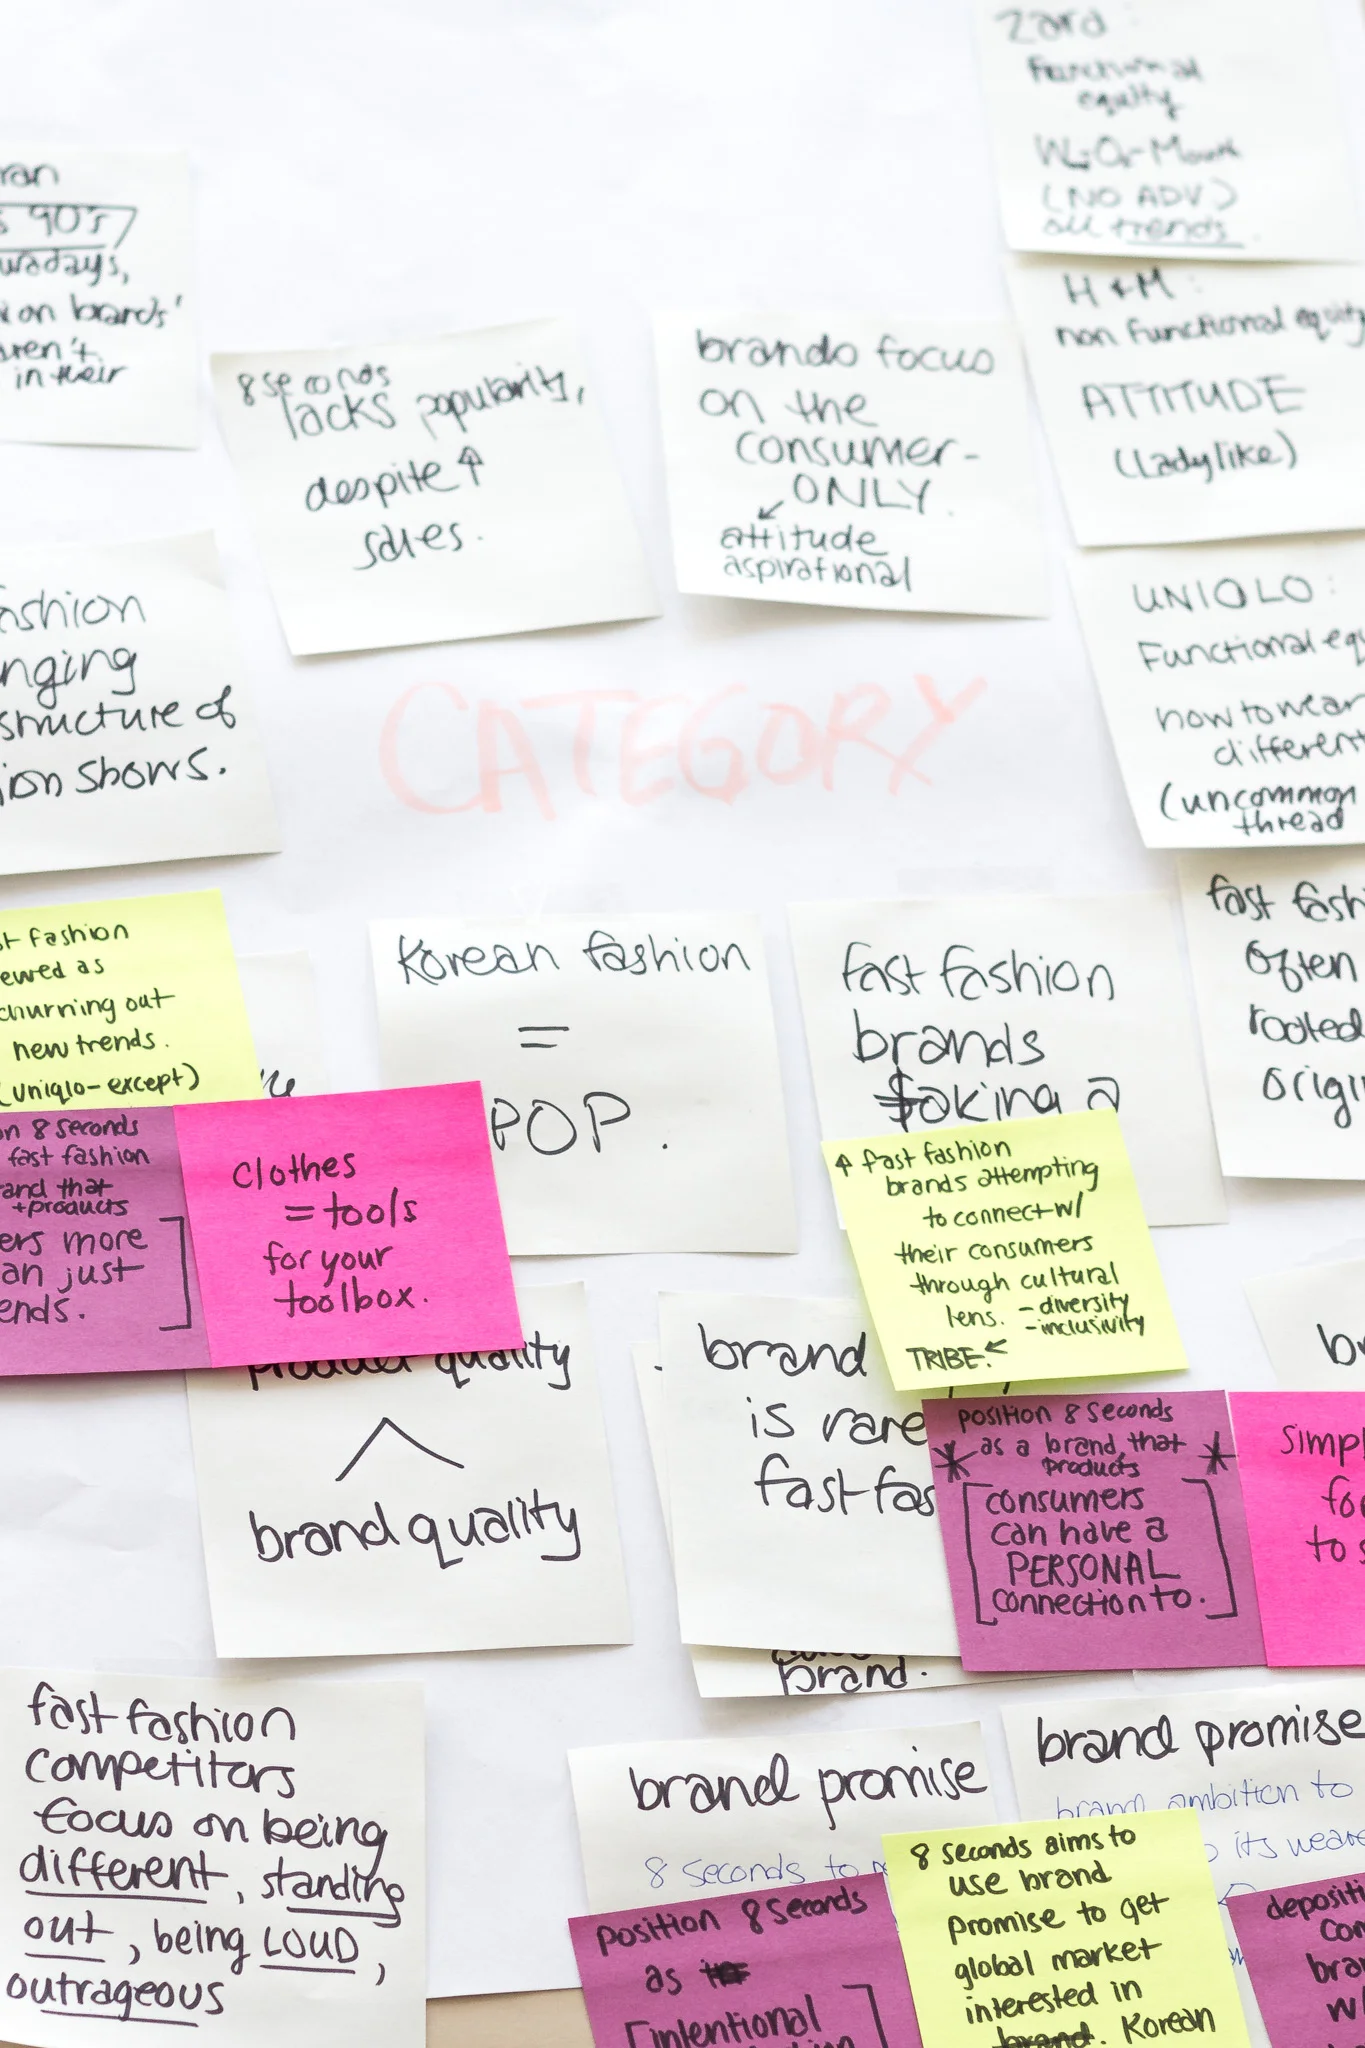 Zara
Functional
equity
(NO ADV)
all trends
ran
90's
wadays,
on brands'
aren't
in their
H&M:
non functional equity
ATTITUDE
(Ladylike)
8 seconds
lacks popularity,
despite ↑
sales.
brando focus
on the
consumer-
ONLY.
attitude
aspirational
ashion
nging
structure of
ion shows.
UNIQLO:
Functional equ
how to wear
different
(uncommon
thread
CATEGORY
st fashion
ewed as
churning out
new trends.
(uniqlo-except)
Korean fashion
=
POP.
fast fashion
brands
a
fast fash
often
rooted
origi
on 8 seconds
fast fashion
and that
+products
ers more
an just
ends.
Clothes
= tools
for your
toolbox.
↑ fast fashion
brands attempting
to connect w/
their consumers
through cultural
lens. - diversity
- inclusivity
TRIBE. ←
product quality
brand quality
brand
is rare
fast fas
brand.
position 8 seconds
* as a brand that *
products
[consumers
can have a
PERSONAL
connection to.]
br
simpl
fo
to s
fast fashion
competitors
focus on being
different, standing
out, being LOUD,
outrageous
brand promise
8 seconds to
brand promise
brand ambition to
its weare
position 8 seconds
as
[intentional
8 seconds aims to
use brand
promise to get
global market
interested in
brand. Korean
depositi
con
bra
w/